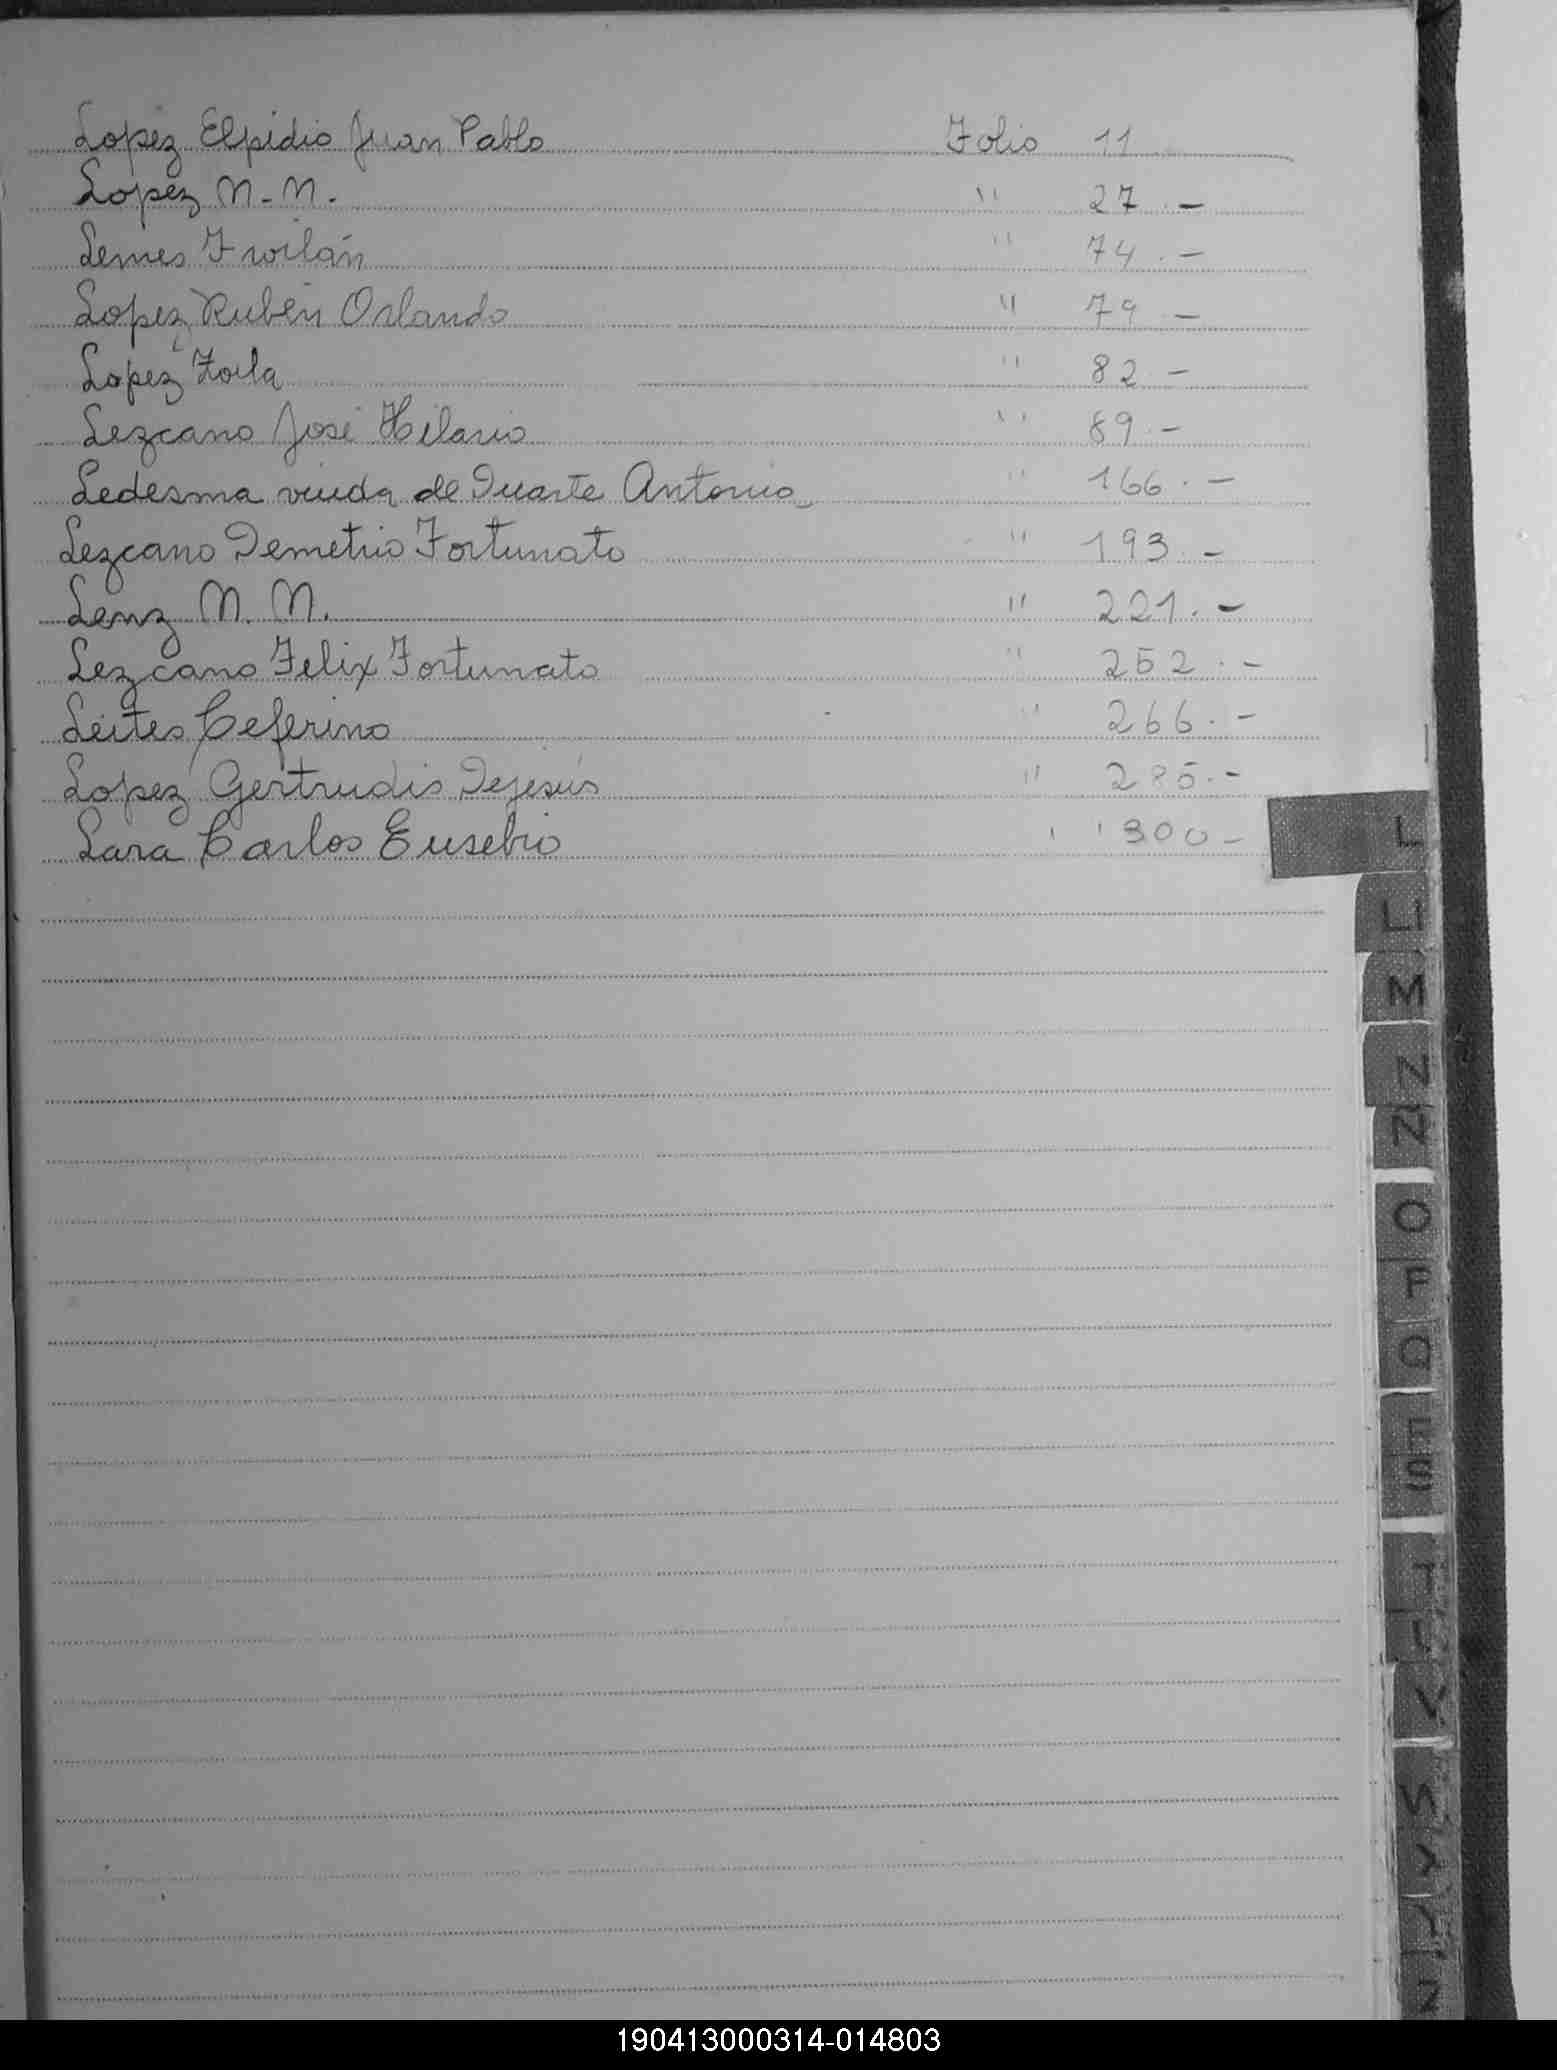 Lopez Elpidio Juan Pablo Folio 11
Lopez N. N. " 27.-
Lemes Froilán " 74.-
Lopez Rubén Orlando " 79.-
Lopez Zoila " 82.-
Lezcano José Hilario " 89.-
Ledesma viuda de Duarte Antonia " 166.-
Lezcano Demetrio Fortunato " 193.-
Lenz N. N. " 221.-
Lezcano Felix Fortunato " 252.-
Leites Ceferino " 266.-
Lopez Gertrudis Dejesús " 285.-
Lara Carlos Eusebio " 300-
L
Ll
M
N
Ñ
O
P
Q
R
S
T
U
V
W
Y
Z
190413000314-014803